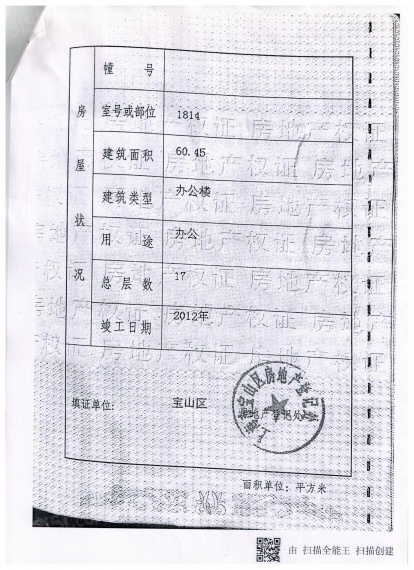 幢 号
房屋状况
室号或部位 1814
建筑面积 60.45
建筑类型 办公楼
用 途 办公
总层数 17
竣工日期 2012年
填证单位: 宝山区
地产登记处
上海市宝山区房地产登记处
面积单位: 平方米
房地产权证
由 扫描全能王 扫描创建